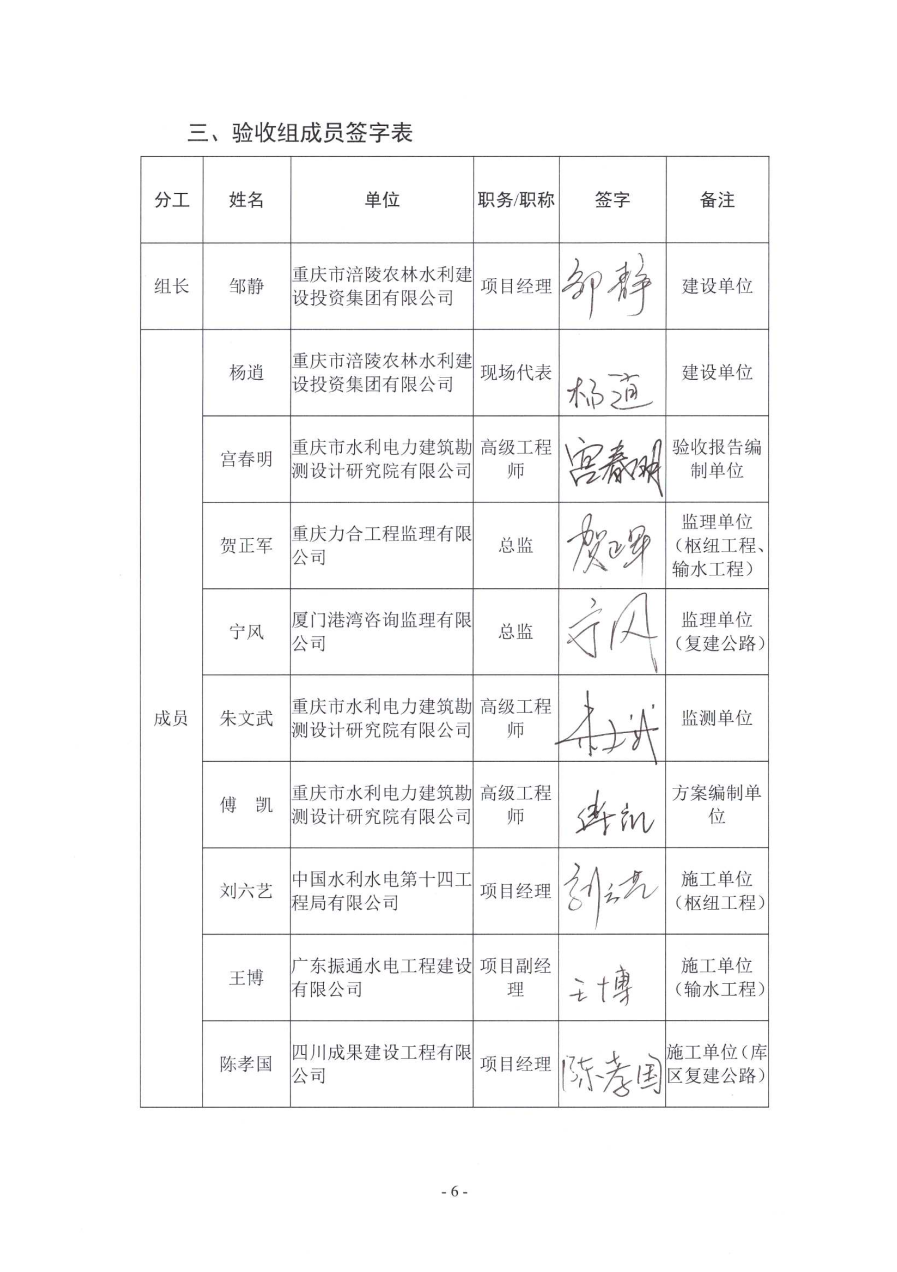 三、验收组成员签字表
分工 姓名 单位 职务/职称 签字 备注
组长 邹静 重庆市涪陵农林水利建 项目经理 邹静 建设单位
设投资集团有限公司
成员
杨逍 重庆市涪陵农林水利建 现场代表 杨逍 建设单位
设投资集团有限公司
宫春明 重庆市水利电力建筑勘 高级工程 宫春明 验收报告编
测设计研究院有限公司 师 制单位
贺正军 重庆力合工程监理有限 总监 贺正军 监理单位
公司 (枢纽工程、
输水工程)
宁风 厦门港湾咨询监理有限 总监 宁风 监理单位
公司 (复建公路)
朱文武 重庆市水利电力建筑勘 高级工程 朱文武 监测单位
测设计研究院有限公司 师
傅 凯 重庆市水利电力建筑勘 高级工程 傅凯 方案编制单
测设计研究院有限公司 师 位
刘六艺 中国水利水电第十四工 项目经理 施工单位
程局有限公司 (枢纽工程)
王博 广东振通水电工程建设 项目副经 王博 施工单位
有限公司 理 (输水工程)
陈孝国 四川成果建设工程有限 项目经理 陈孝国 施工单位(库
公司 区复建公路)
- 6 -